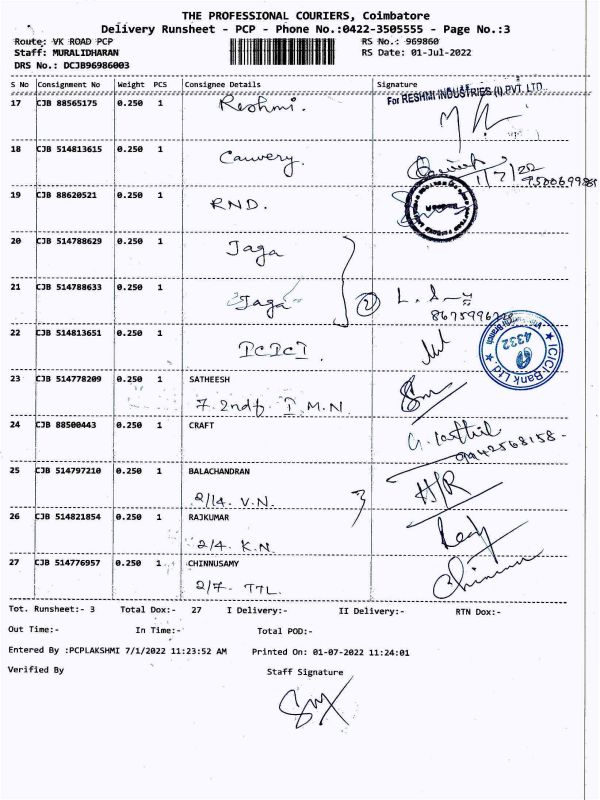 THE PROFESSIONAL COURIERS, Coimbatore
Delivery Runsheet - PCP - Phone No.:0422-3505555 - Page No.:3
Route: VK ROAD PCP RS No.: 969860
Staff: MURALIDHARAN RS Date: 01-Jul-2022
DRS No.: DCJB96986003
S No Consignment No Weight PCS Consignee Details Signature
17 CJB 88565175 0.250 1 Reshmi. For RESHMI INDUSTRIES (I) PVT. LTD.
18 CJB 514813615 0.250 1 Cauvery.
1/7/22
19 CJB 88620521 0.250 1 RND.
20 CJB 514788629 0.250 1 Jaga
21 CJB 514788633 0.250 1 Jaga 2
22 CJB 514813651 0.250 1 ICICI ICICI Bank Ltd. 4332
23 CJB 514778209 0.250 1 SATHEESH
7. 2ndf. I M.N
24 CJB 88500443 0.250 1 CRAFT
25 CJB 514797210 0.250 1 BALACHANDRAN H/R
2/14. V.N.
26 CJB 514821854 0.250 1 RAJKUMAR
2/4. K.N.
27 CJB 514776957 0.250 1 CHINNUSAMY
2/7- TTL.
Tot. Runsheet:- 3 Total Dox:- 27 I Delivery:- II Delivery:- RTN Dox:-
Out Time:- In Time:- Total POD:-
Entered By :PCPLAKSHMI 7/1/2022 11:23:52 AM Printed On: 01-07-2022 11:24:01
Verified By Staff Signature